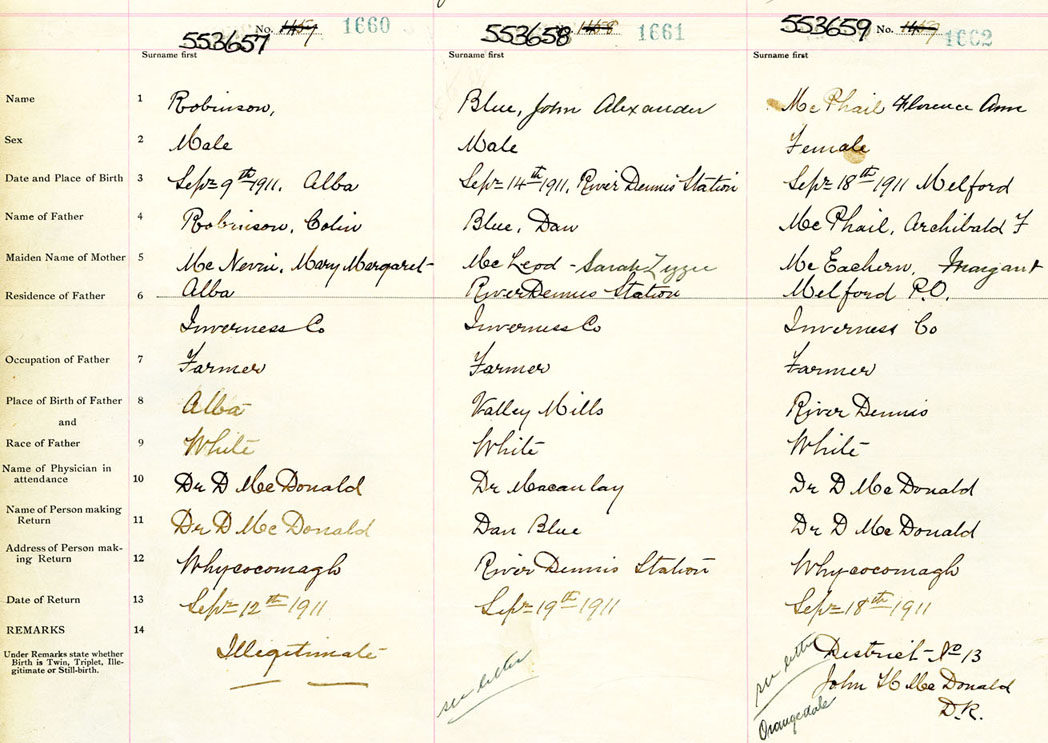 553657 No. 1457 1660 553658 1458 1661 553659 No. 1459 1662
Surname first Surname first Surname first
Name 1 Robinson, Blue, John Alexander Mc Phail Florence Ann
Sex 2 Male Male Female
Date and Place of Birth 3 Sept 9th 1911. Alba Sept 14th 1911, River Dennis Station Sept 18th 1911 Melford
Name of Father 4 Robinson, Colin Blue, Dan Mc Phail, Archibald F
Maiden Name of Mother 5 Mc Nevin, Mary Margaret Mc Leod - Sarah Lizzie Mc Eachern, Margaret
Residence of Father 6 Alba River Dennis Station Melford P.O.
Inverness Co Inverness Co Inverness Co
Occupation of Father 7 Farmer Farmer Farmer
Place of Birth of Father 8 Alba Valley Mills River Dennis
and
Race of Father 9 White White White
Name of Physician in
attendance 10 Dr D Mc Donald Dr Macaulay Dr D Mc Donald
Name of Person making
Return 11 Dr D Mc Donald Dan Blue Dr D Mc Donald
Address of Person mak-
ing Return 12 Whycocomagh River Dennis Station Whycocomagh
Date of Return 13 Sept 12th 1911 Sept 19th 1911 Sept 18th 1911
REMARKS 14
Under Remarks state whether
Birth is Twin, Triplet, Ille-
gitimate or Still-birth.
Illegitimate
see letter
see letter
Orangedale
District No 13
John H Mc Donald
D.R.